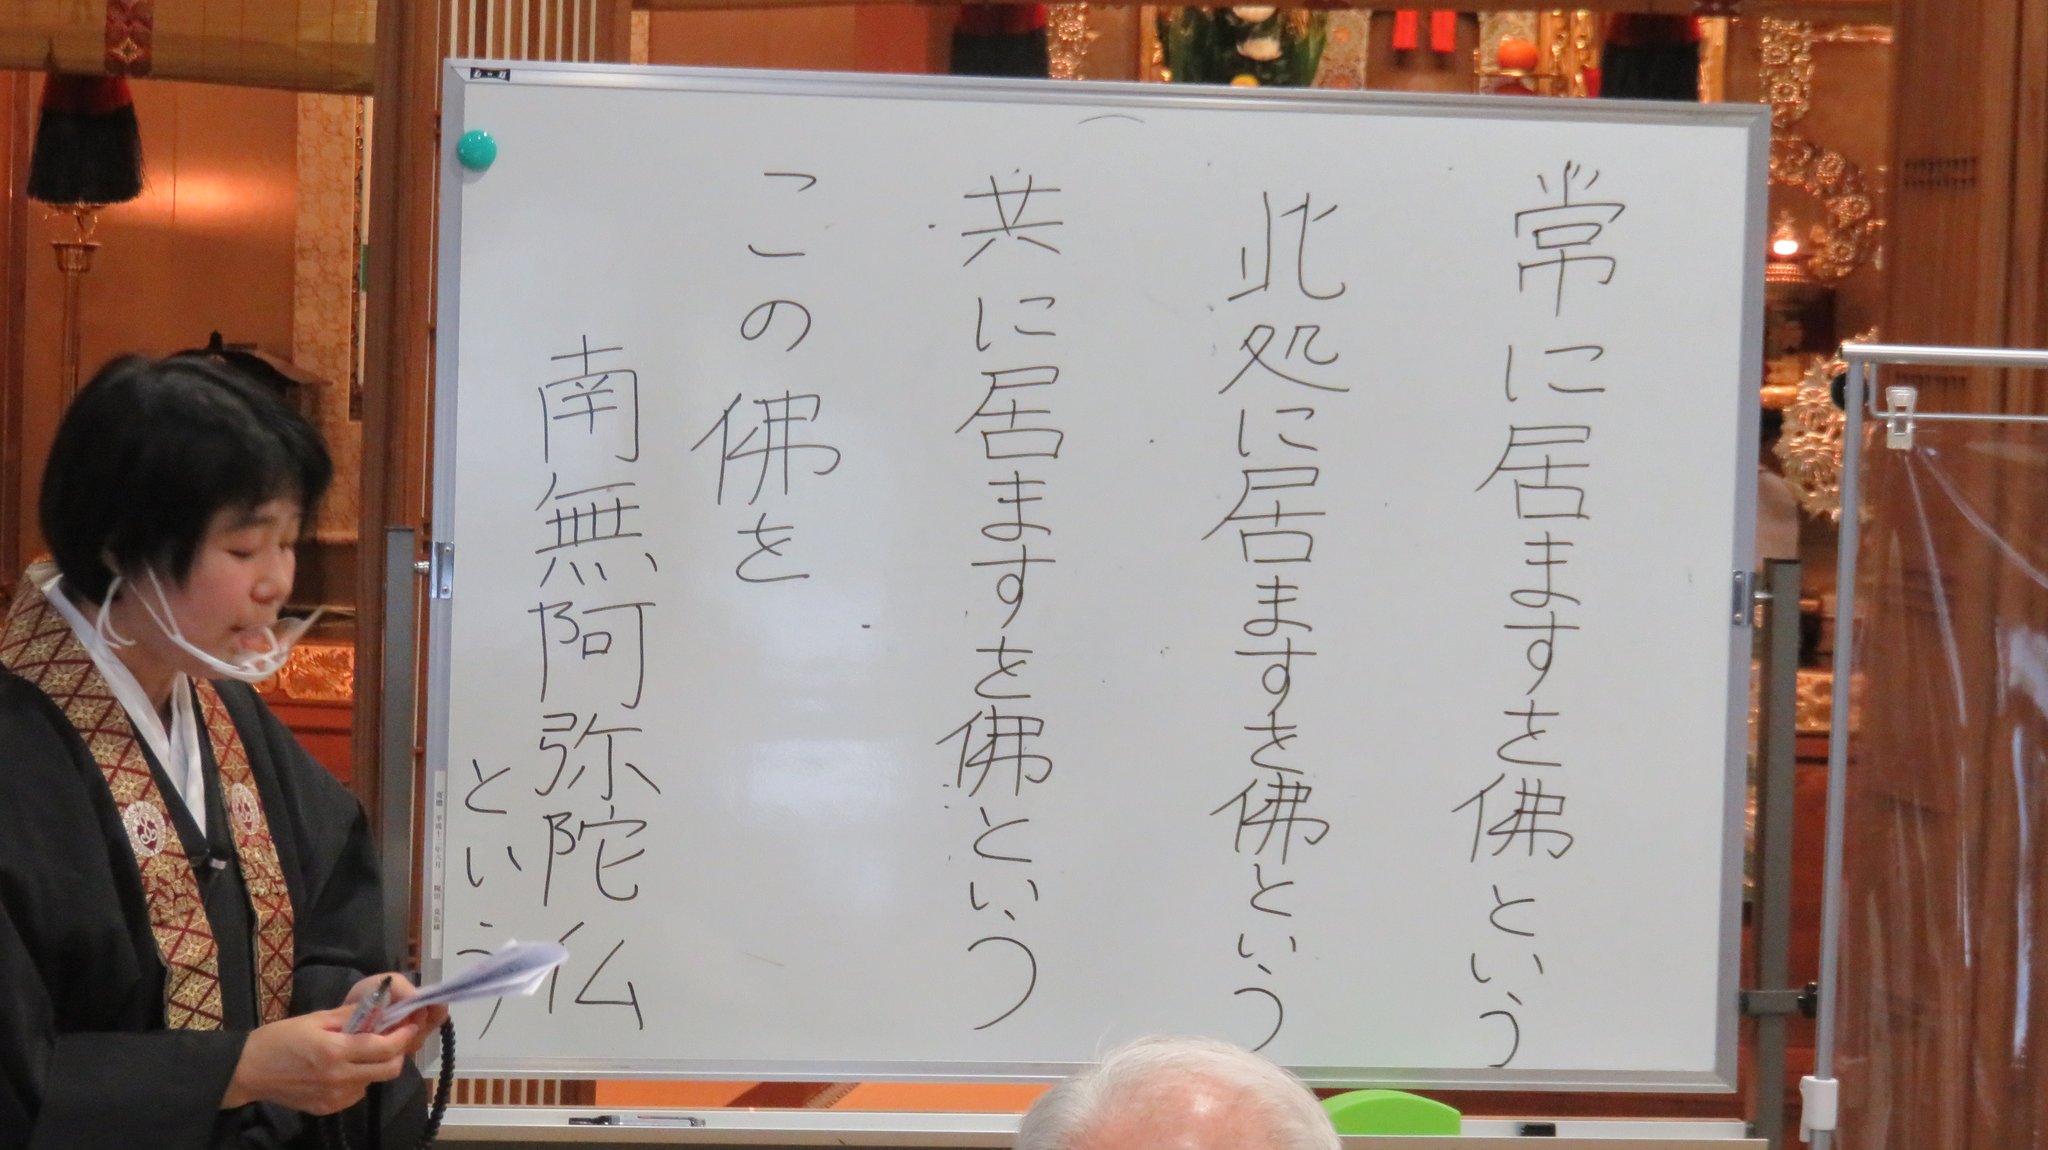 常に居ますを佛という
此処に居ますを佛という
共に居ますを佛という
この佛を
南無阿弥陀仏
という